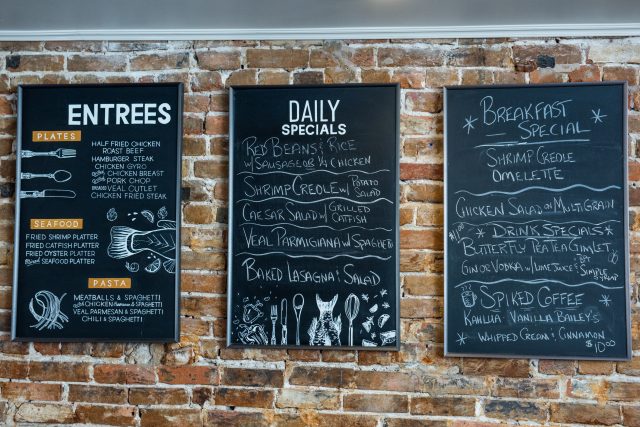 ENTREES
PLATES
HALF FRIED CHICKEN
ROAST BEEF
HAMBURGER STEAK
CHICKEN GYRO
CHICKEN BREAST
PORK CHOP
BREADED VEAL OUTLET
CHICKEN FRIED STEAK
SEAFOOD
FRIED SHRIMP PLATTER
FRIED CATFISH PLATTER
FRIED OYSTER PLATTER
SEAFOOD PLATTER
PASTA
MEATBALLS & SPAGHETTI
CHICKEN PARMESAN & SPAGHETTI
VEAL PARMESAN & SPAGHETTI
CHILI & SPAGHETTI
DAILY
SPECIALS
RED BEANS & RICE
W/ SAUSAGE OR 1/4 CHICKEN
SHRIMP CREOLE W/ POTATO SALAD
CAESAR SALAD W/ GRILLED CATFISH
VEAL PARMIGIANA W/ SPAGHETTI
BAKED LASAGNA & SALAD
BREAKFAST
SPECIAL
SHRIMP CREOLE
OMELETTE
CHICKEN SALAD ON MULTIGRAIN
DRINK SPECIALS
BUTTERFLY PEA TEA GIMLET
GIN OR VODKA W/ LIME JUICE & SIMPLE SYRUP
SPIKED COFFEE
KAHLUA · VANILLA BAILEY'S
WHIPPED CREAM & CINNAMON
$10.00